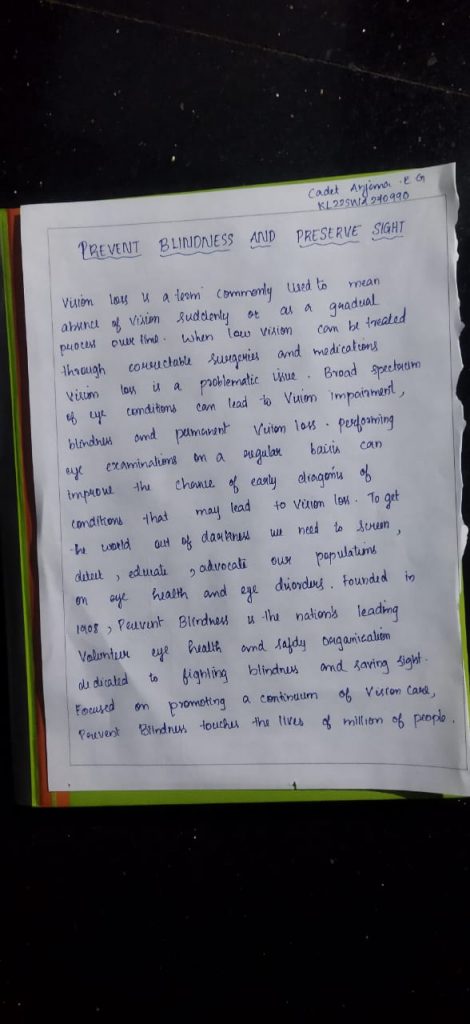 Cadet Anjima .E G
KL22SWA240990
PREVENT BLINDNESS AND PRESERVE SIGHT
Vision loss is a term commonly used to mean
absence of vision suddenly or as a gradual
process over time. When low vision can be treated
through correctable surgeries and medications
Vision loss is a problematic issue. Broad spectrum
of eye conditions can lead to vision impairment,
blindness and permanent vision loss. performing
eye examinations on a regular basis can
improve the chance of early diagonis of
conditions that may lead to vision loss. To get
the world out of darkness we need to screen,
detect, educate, advocate our populations
on eye health and eye disorders. Founded in
1908, Prevent Blindness is the nation's leading
Volunteer eye health and safety organisation
dedicated to fighting blindness and saving sight.
Focused on promoting a continuum of Vision Care,
Prevent Blindness touches the lives of million of people.